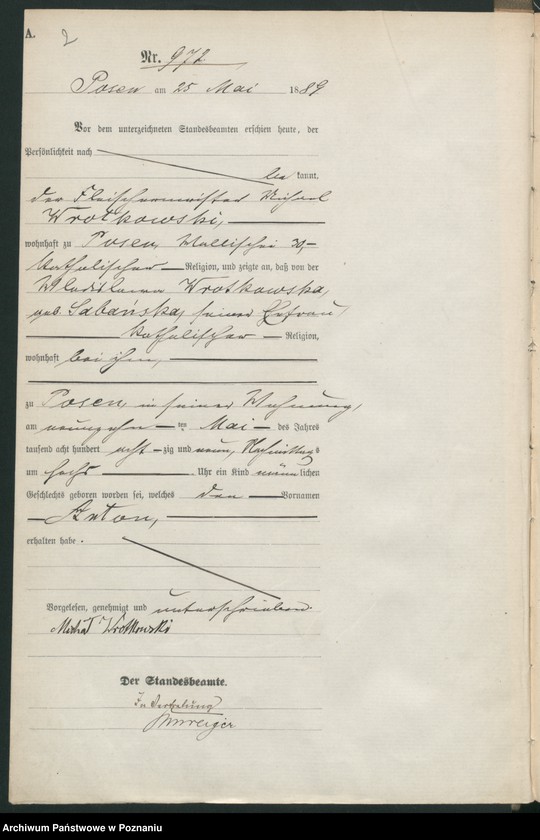 A. 2
Nr. 972
Posen am 25 Mai 1889
Vor dem unterzeichneten Standesbeamten erschien heute, der
Persönlichkeit nach
be kannt,
der Fleischermeister Michael
Wrotkowski,
wohnhaft zu Posen, Wallischei 30,
katholischer Religion, und zeigte an, daß von der
Wladislawa Wrotkowska,
geb. Sabańska, seiner Ehefrau,
katholischer Religion,
wohnhaft bei ihm,
zu Posen, in seiner Wohnung,
am neunzehn ten Mai des Jahres
tausend acht hundert acht zig und neun, Nachmittags
um sechs Uhr ein Kind männ lichen
Geschlechts geboren worden sei, welches den Vornamen
Anton,
erhalten habe.
Vorgelesen, genehmigt und unterschrieben
Michał Wrotkowski
Der Standesbeamte.
In Vertretung
Archiwum Państwowe w Poznaniu